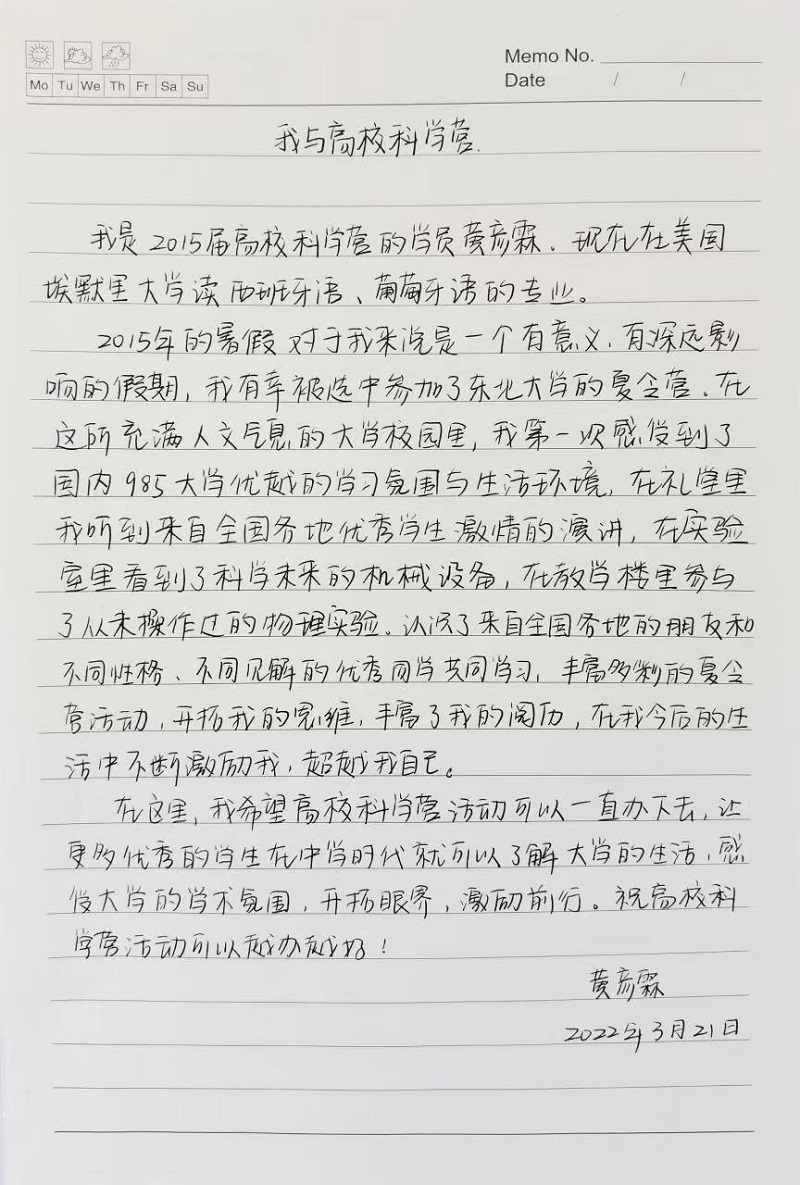 Memo No.
Mo Tu We Th Fr Sa Su
Date / /
我与高校科学营.
我是2015届高校科学营的学员黄彦霖.现在在美国
埃默里大学读西班牙语、葡萄牙语的专业。
2015年的暑假对于我来说是一个有意义.有深远影
响的假期,我有幸被选中参加了东北大学的夏令营.在
这所充满人文气息的大学校园里,我第一次感受到了
国内985大学优越的学习氛围与生活环境,在礼堂里
我听到来自全国各地优秀学生激情的演讲,在实验
室里看到了科学未来的机械设备,在教学楼里参与
了从未操作过的物理实验。认识了来自全国各地的朋友和
不同性格、不同见解的优秀同学共同学习,丰富多彩的夏令
营活动,开拓我的思维,丰富了我的阅历,在我今后的生
活中不断激励我,超越我自己。
在这里,我希望高校科学营活动可以一直办下去,让
更多优秀的学生在中学时代就可以了解大学的生活,感
受大学的学术氛围,开拓眼界,激励前行。祝高校科
学营活动可以越办越好!
黄彦霖
2022年3月21日